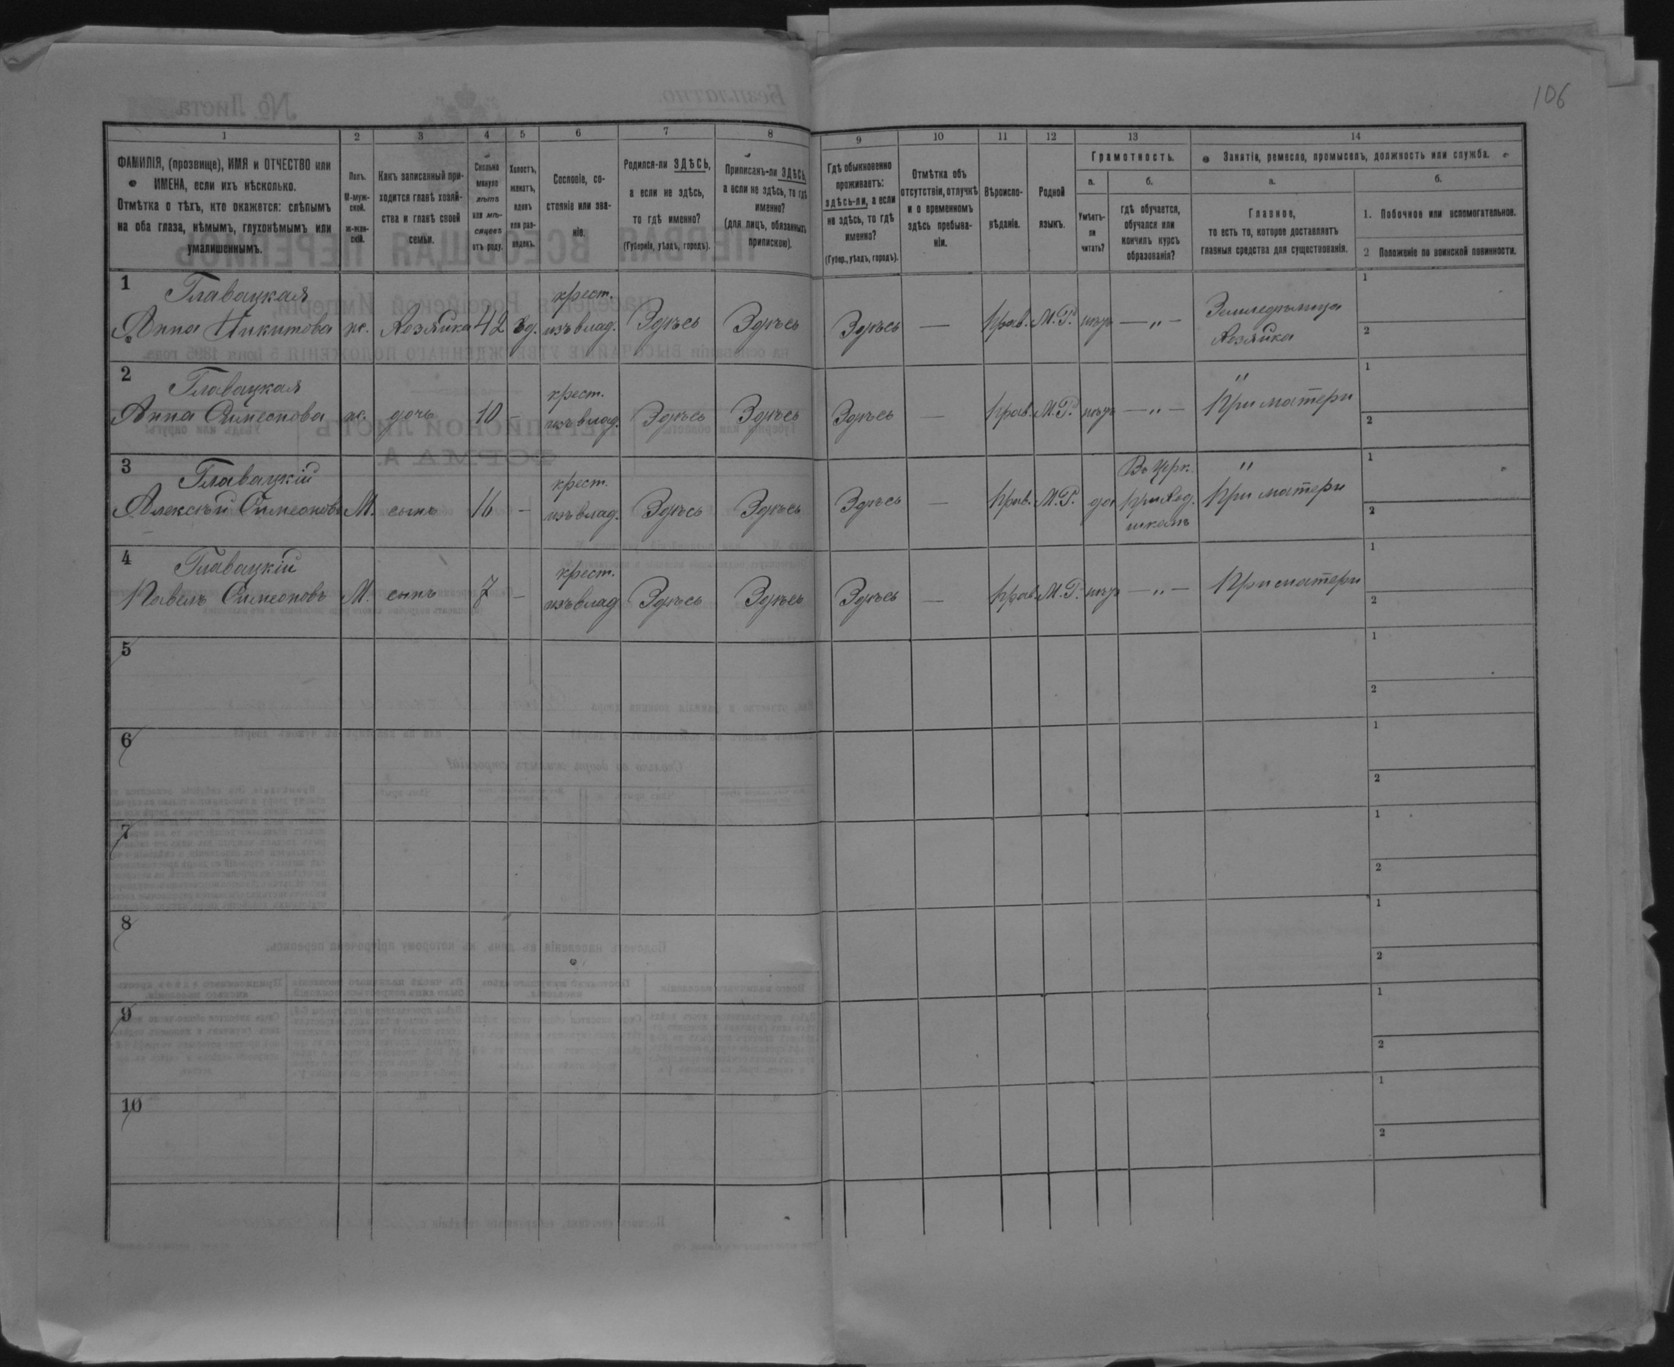 106
1 2 3 4 5 6 7 8 9 10 11 12 13 14
ФАМИЛІЯ, (прозвище), ИМЯ и ОТЧЕСТВО или
ИМЕНА, если ихъ нѣсколько.
Отмѣтка о тѣхъ, кто окажется: слѣпымъ
на оба глаза, нѣмымъ, глухонѣмымъ или
умалишеннымъ.
Полъ.
М-муж-
ской.
ж-жен-
скій.
Какъ записанный при-
ходится главѣ хозяй-
ства и главѣ своей
семьи.
Сколько
минуло
лѣтъ
или мѣ-
сяцевъ
отъ роду.
Холостъ,
женатъ,
вдовъ
или раз-
веденъ.
Сословіе, со-
стояніе или зва-
ніе.
Родился-ли ЗДѢСЬ,
а если не здѣсь,
то гдѣ именно?
(Губернія, уѣздъ, городъ).
Приписанъ-ли ЗДѢСЬ,
а если не здѣсь, то гдѣ
именно?
(для лицъ, обязанныхъ
припискою).
Гдѣ обыкновенно
проживаетъ:
здѣсь-ли, а если
не здѣсь, то гдѣ
именно?
(Губер., уѣздъ, городъ).
Отмѣтка объ
отсутствіи, отлучкѣ
и о временномъ
здѣсь пребыва-
ніи.
Вѣроиспо-
вѣданіе.
Родной
языкъ.
Грамотность.
а.
Умѣетъ-
ли
читать?
б.
гдѣ обучается,
обучался или
кончилъ курсъ
образованія?
Занятія, ремесла, промыселъ, должность или служба.
а.
Главное,
то есть то, которое доставляетъ
главныя средства для существованія.
б.
1. Побочное или вспомогательное.
2 Положеніе по воинской повинности.
1 Главацкая крест. Земледѣлица 1
Анна Никитова ж. Хозяйка 42 вд. изъ влад. Здѣсь Здѣсь Здѣсь — Прав. М.Р. нѣтъ — „ — Хозяйка 2
2 Главацкая крест. „ 1
Анна Симеонова ж. дочь 10 - изъ влад. Здѣсь Здѣсь Здѣсь — Прав. М.Р. нѣтъ — „ — При матери 2
3 Главацкій крест. Въ црк. „ 1
Алексѣй Симеоновъ М. сынъ 16 - изъ влад. Здѣсь Здѣсь Здѣсь — Прав. М.Р. да приход. При матери 2
школѣ
4 Главацкій крест. 1
Павелъ Симеоновъ М. сынъ 7 - изъ влад. Здѣсь Здѣсь Здѣсь — Прав. М.Р. нѣтъ — „ — При матери 2
5 1
2
6 1
2
7 1
2
8 1
2
9 1
2
10 1
2